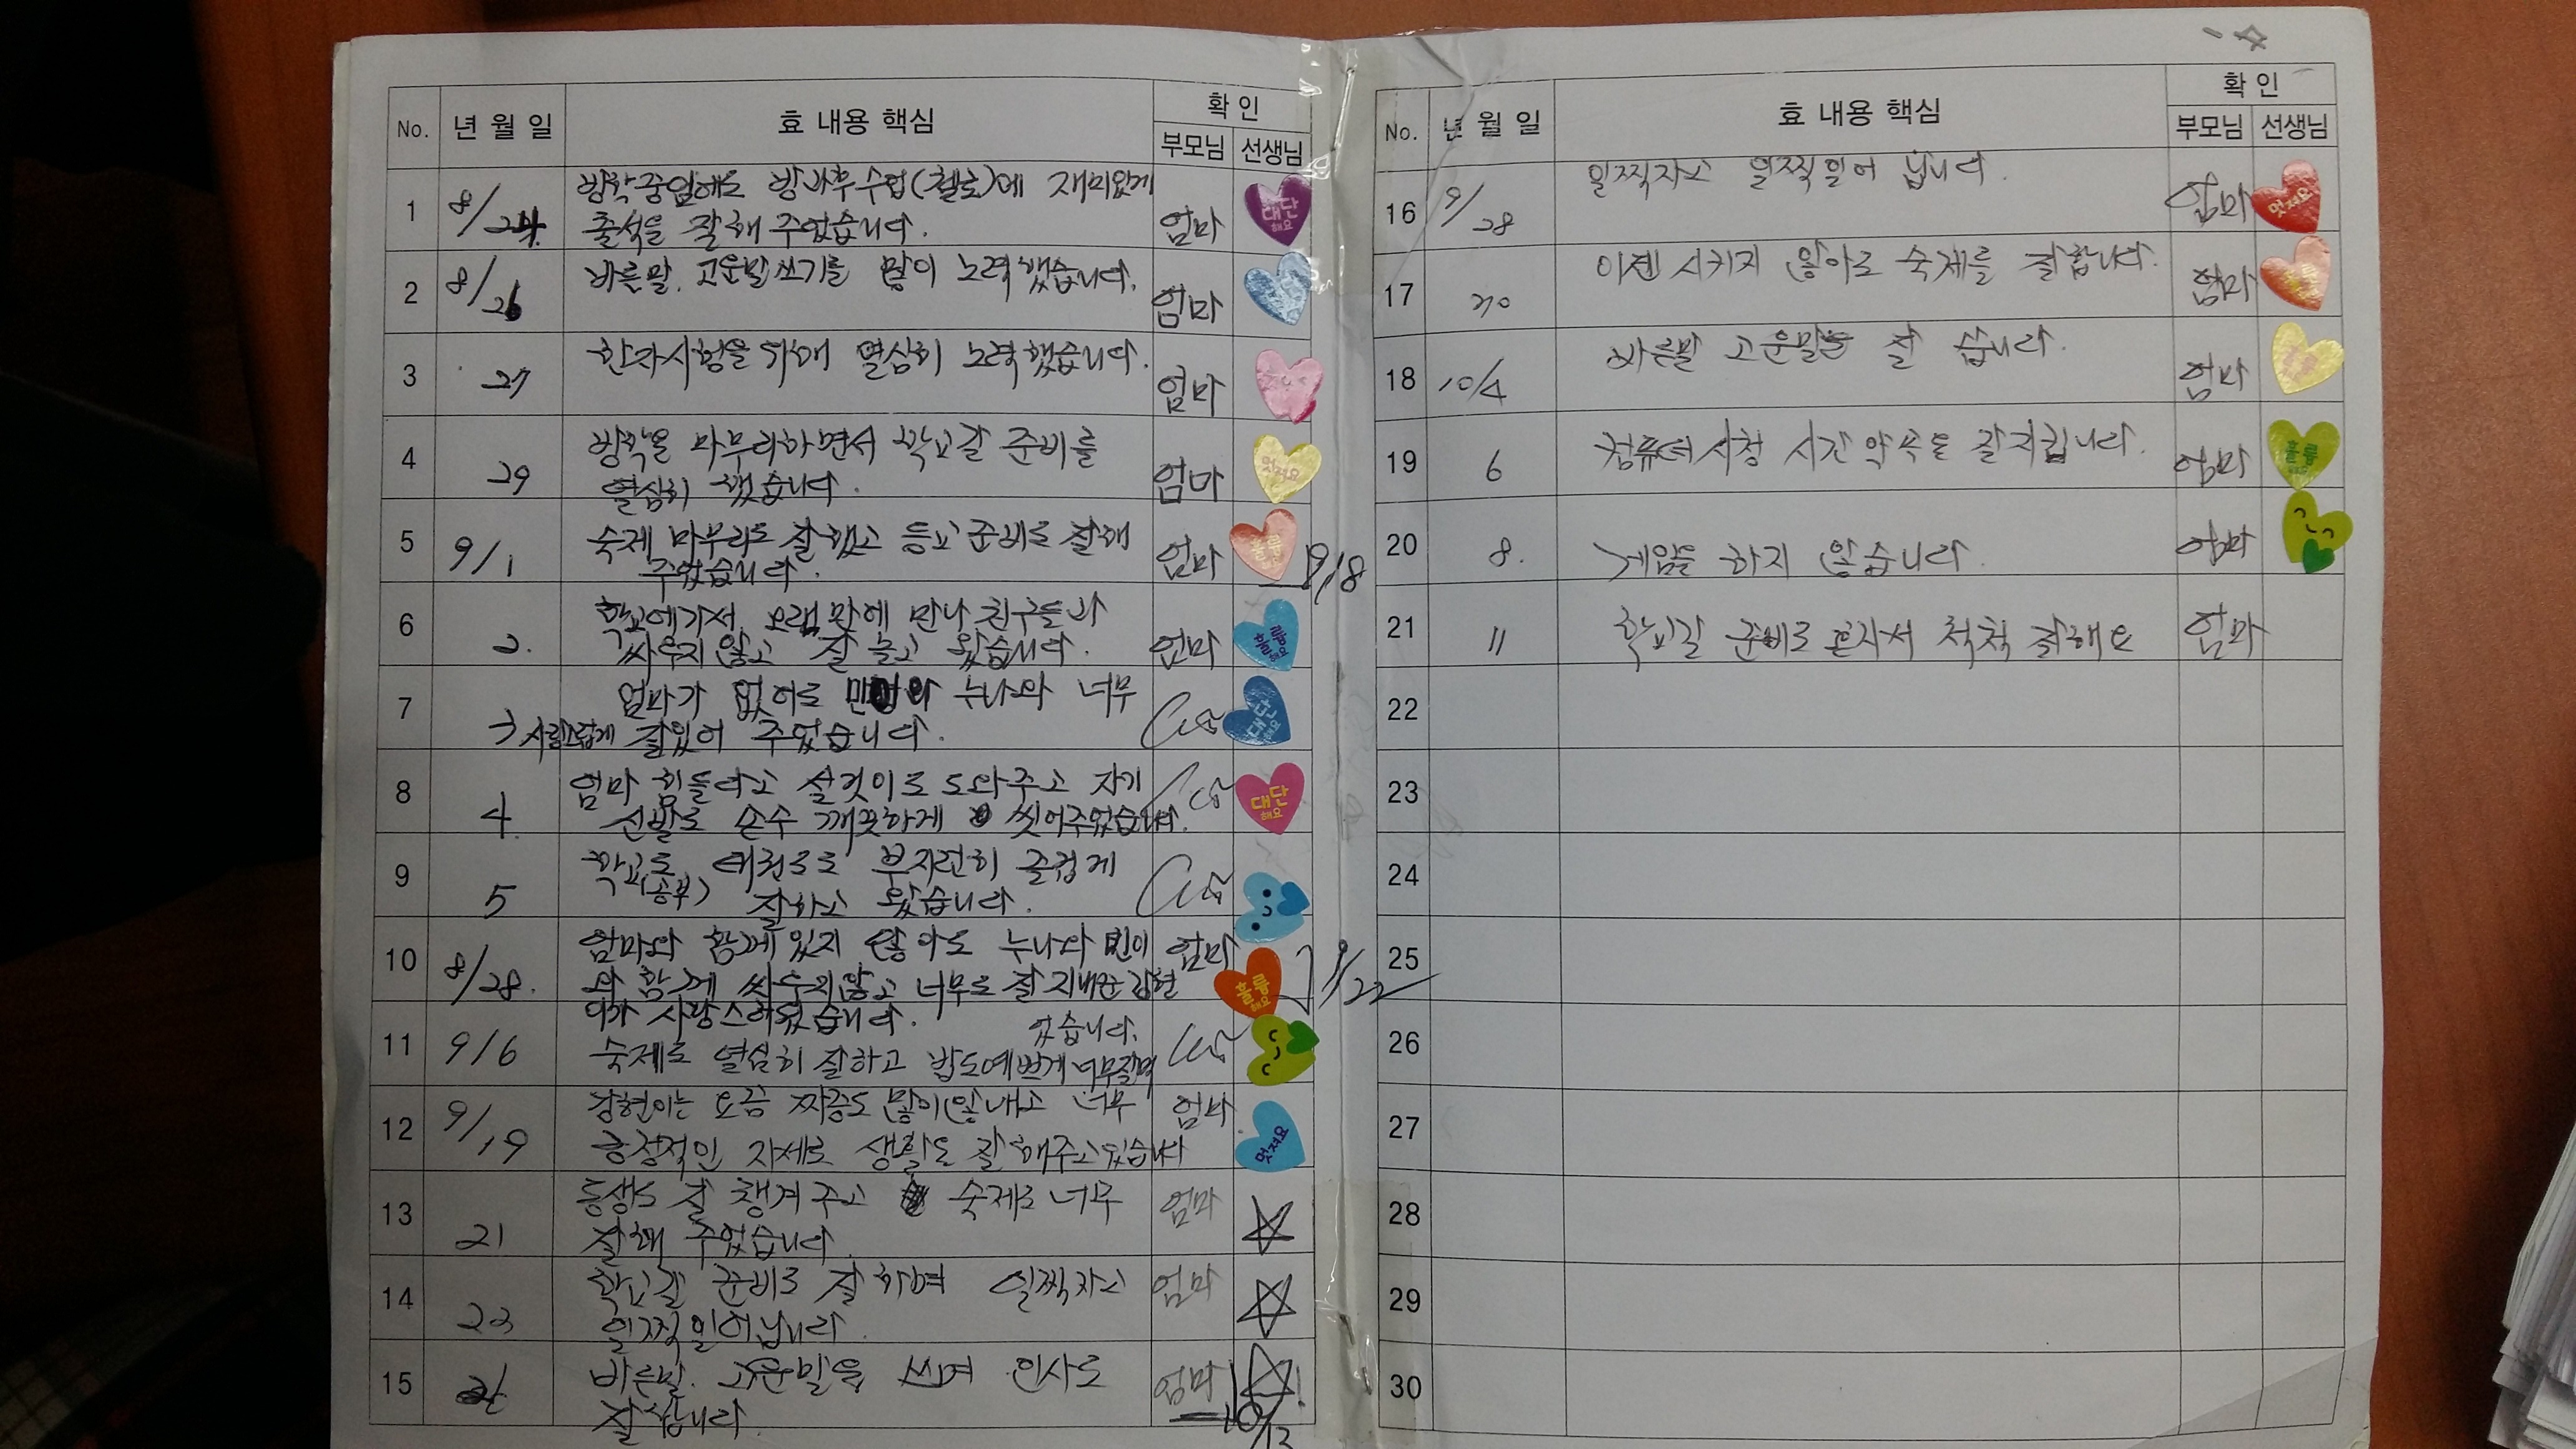 No. 년 월 일 효 내용 핵심 확 인
부모님 선생님
1 8/24 방학중임에도 방과후수업(첼로)에 재미있게
출석을 잘해 주었습니다. 엄마 대단해요
2 8/26 바른말. 고운말쓰기를 많이 노력했습니다. 엄마
3 27 한자시험을 위해 열심히 노력했습니다. 엄마
4 29 방학을 마무리하면서 학교갈 준비를
열심히 했습니다. 엄마 멋져요
5 9/1 숙제 마무리도 잘했고 등교 준비도 잘해
주었습니다. 엄마 훌륭해요 9/18
6 2. 학교에가서 오랜만에 만나 친구들과
싸우지 않고 잘 놀고 왔습니다. 엄마 훌륭해요
7 엄마가 없어도 누나와 너무
3 사랑스럽게 잘있어 주었습니다. 대단해요
8 엄마 힘들다고 설것이도 도와주고 자기
4. 신발도 손수 깨끗하게 씻어주었습니다. 대단해요
9 학교도 태권도도 부지런히 즐겁게
5 (공부) 잘하고 왔습니다.
10 엄마와 함께있지 않아도 누나와 민이 엄마
8/28. 와 함께 싸우지않고 너무도 잘지내준 강현 훌륭해요 9/22
이가 사랑스러웠습니다.
었습니다.
11 9/6 숙제도 열심히 잘하고 밥도예쁘게 너무잘먹
12 9/19 강현이는 요즘 짜증도 많이않내고 너무 엄마
긍정적인 자세로 생활도 잘해주고있습니다 멋져요
13 동생도 잘 챙겨주고 숙제도 너무 엄마
21 잘해 주었습니다.
14 학교갈 준비도 잘하며 일찍자고 엄마
23 일찍일어납니다.
15 바른말. 고운말을 쓰며 인사도 엄마
잘합니다. 10/13
No. 년 월 일 효 내용 핵심 확 인
부모님 선생님
16 9/28 일찍자고 일찍일어 납니다. 엄마 멋져요
17 30 이젠 시키지 않아도 숙제를 잘합니다. 엄마
18 10/4 바른말 고운말을 잘 씁니다. 엄마
19 6 컴퓨터시청 시간약속을 잘지킵니다. 엄마 훌륭해요
20 8. 게임을 하지 않습니다. 엄마
21 11 학교갈 준비도 혼자서 척척 잘해요 엄마
22
23
24
25
26
27
28
29
30